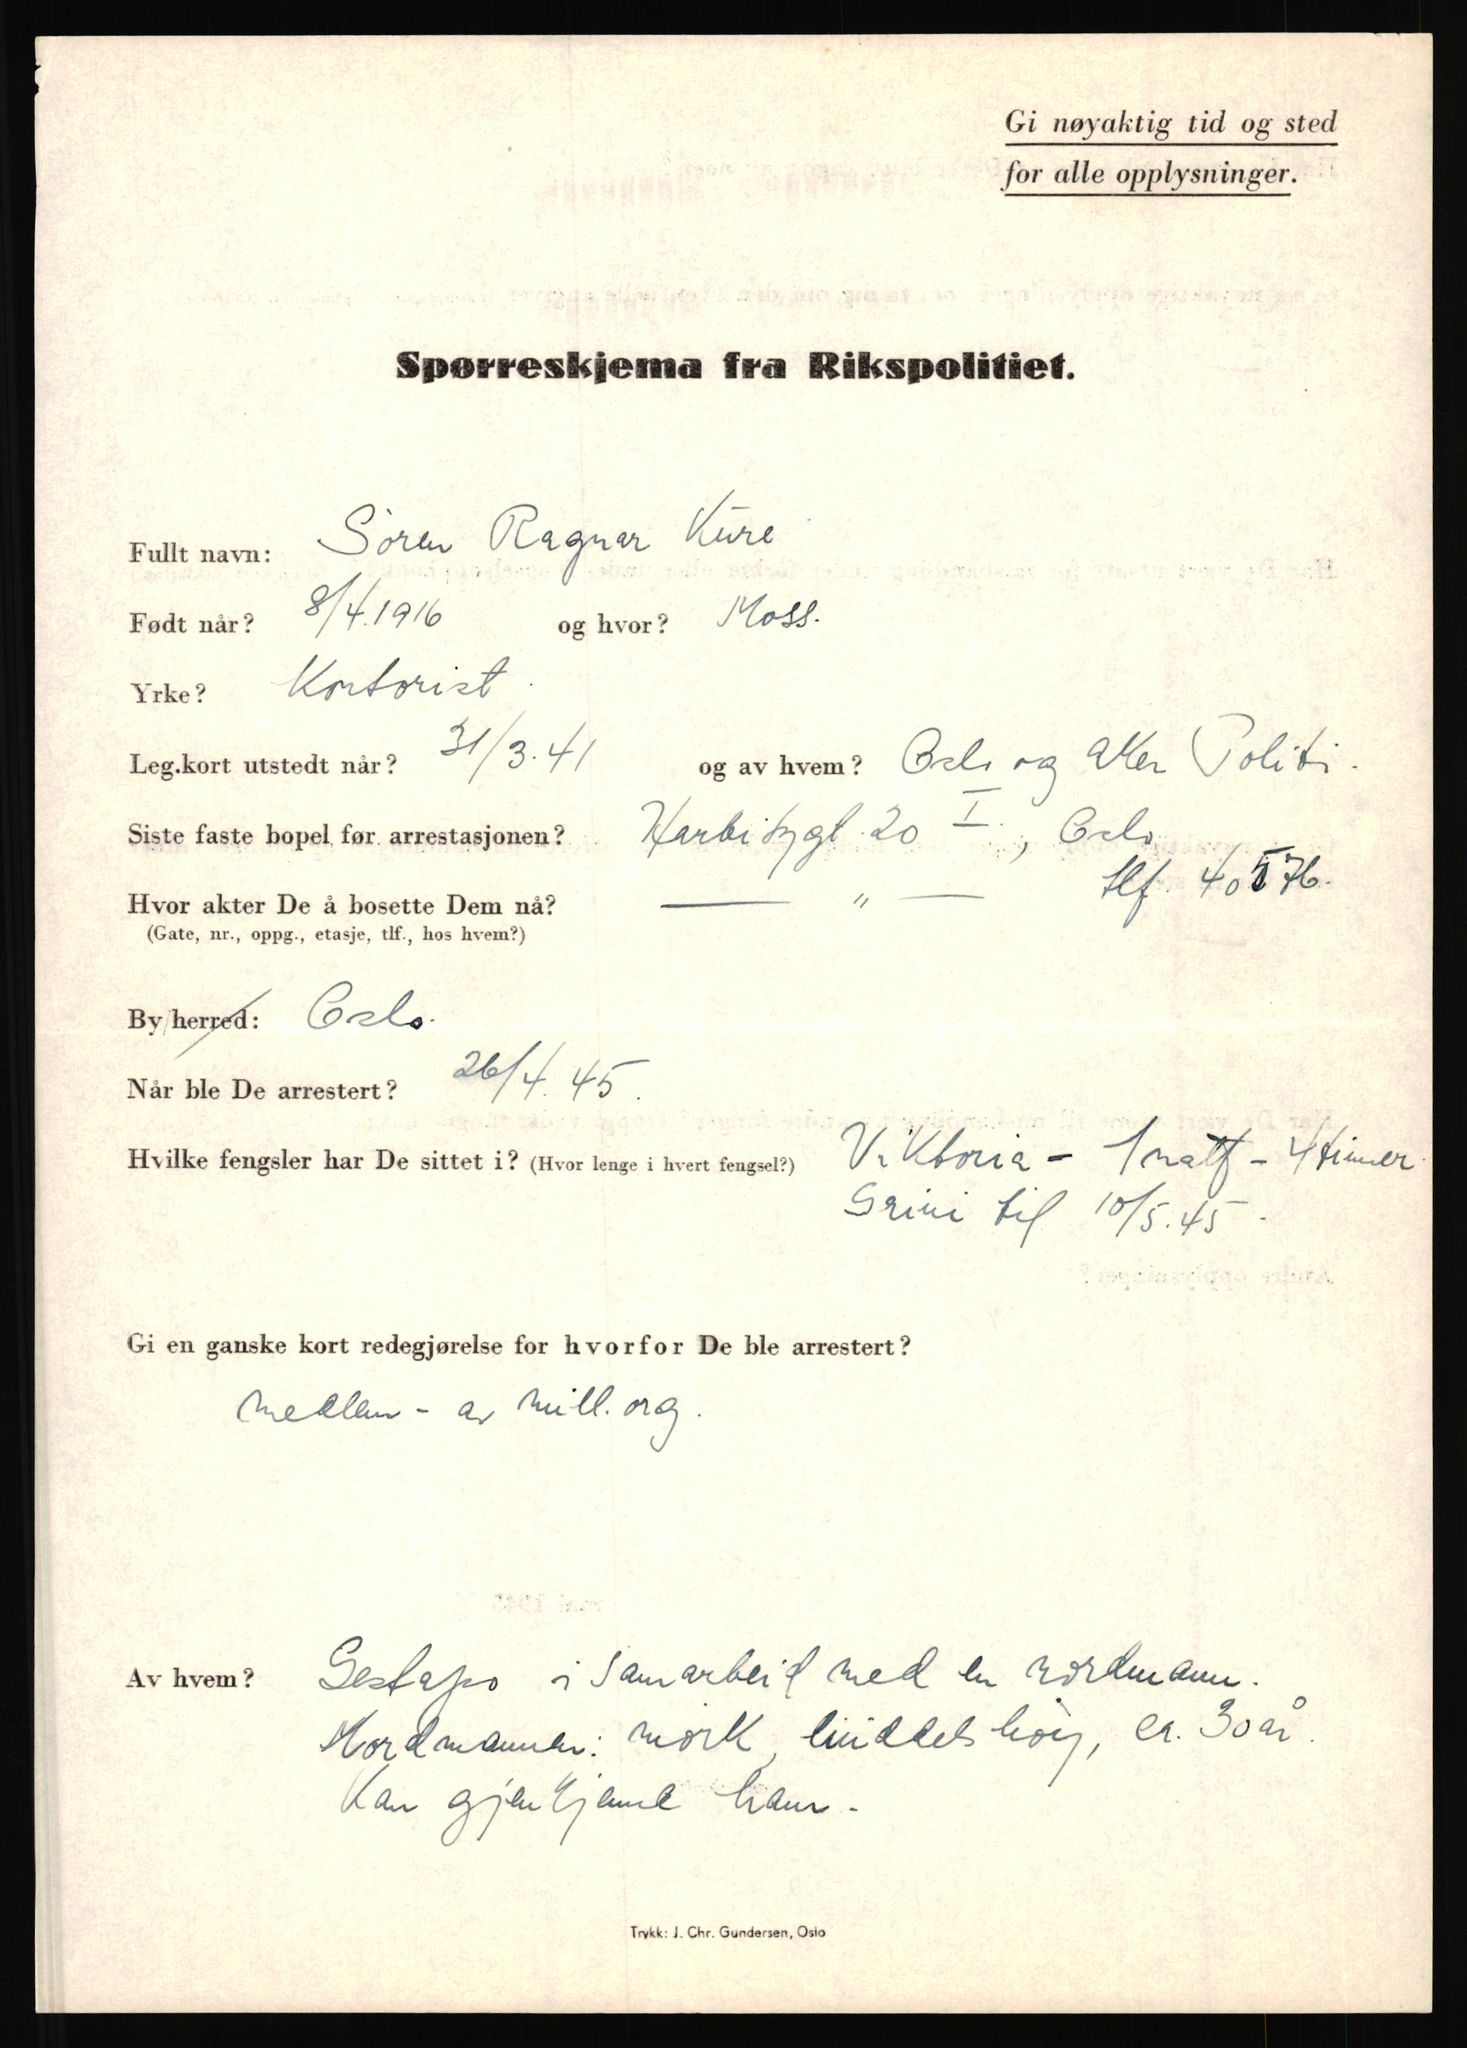 Gi nøyaktig tid og sted
for alle opplysninger.
Spørreskjema fra Rikspolitiet.
Fullt navn: Sören Ragnar Kure
Født når? 8/4.1916 og hvor? Moss.
Yrke? Kontorist.
Leg.kort utstedt når? 31/3.41 og av hvem? Oslo og Aker Politi.
Siste faste bopel før arrestasjonen? Harbitzgt. 20 I, Oslo
Hvor akter De å bosette Dem nå? — " — tlf. 40576.
(Gate, nr., oppg., etasje, tlf., hos hvem?)
By/herred: Oslo.
Når ble De arrestert? 26/4.45.
Hvilke fengsler har De sittet i? (Hvor lenge i hvert fengsel?) Viktoria – 1 natt – 4 timer
Grini til 10/5.45.
Gi en ganske kort redegjørelse for hvorfor De ble arrestert?
Medlem – av mill.org.
Av hvem? Gestapo i samarbeid med en nordmann.
Nordmannen: mörk, middelshöy, ca. 30 år.
Kan gjenkjenne ham.
Trykk: J. Chr. Gundersen, Oslo